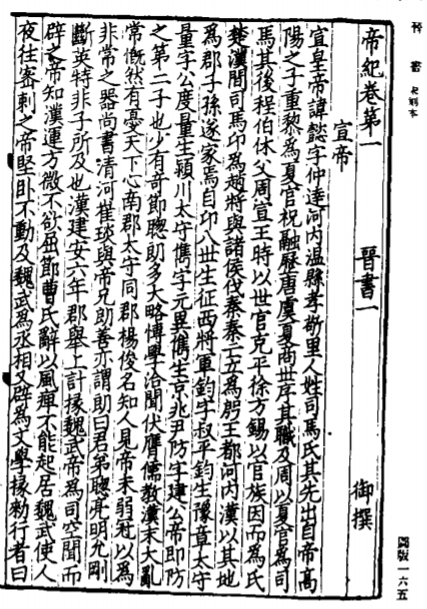 晉書
圖版一六五
帝紀卷第一 晉書一 御撰
宣帝
宣皇帝諱懿字仲達河内温縣孝敬里人姓司馬氏其先出自帝高
陽之子重黎為夏官祝融歷唐虞夏商世序其職及周以夏官為司
馬其後程伯休父周宣王時以世官克平徐方錫以官族因而為氏
楚漢間司馬卬為趙將與諸侯伐秦秦亡立為殷王都河内漢以其地
為郡子孫遂家焉自卬八世生征西將軍鈞字叔平鈞生豫章太守
量字公度量生潁川太守儁字元異儁生京兆尹防字建公帝即防
之第二子也少有奇節聦朗多大略博學洽聞伏膺儒教漢末大亂
常慨然有憂天下心南郡太守同郡楊俊名知人見帝未弱冠以為
非常之器尚書清河崔琰與帝兄朗善亦謂朗曰君弟聦亮明允剛
斷英特非子所及也漢建安六年郡舉上計掾魏武帝為司空聞而
辟之帝知漢運方微不欲屈節曹氏辭以風痺不能起居魏武使人
夜往密刺之帝堅卧不動及魏武為丞相又辟為文學掾勑行者曰